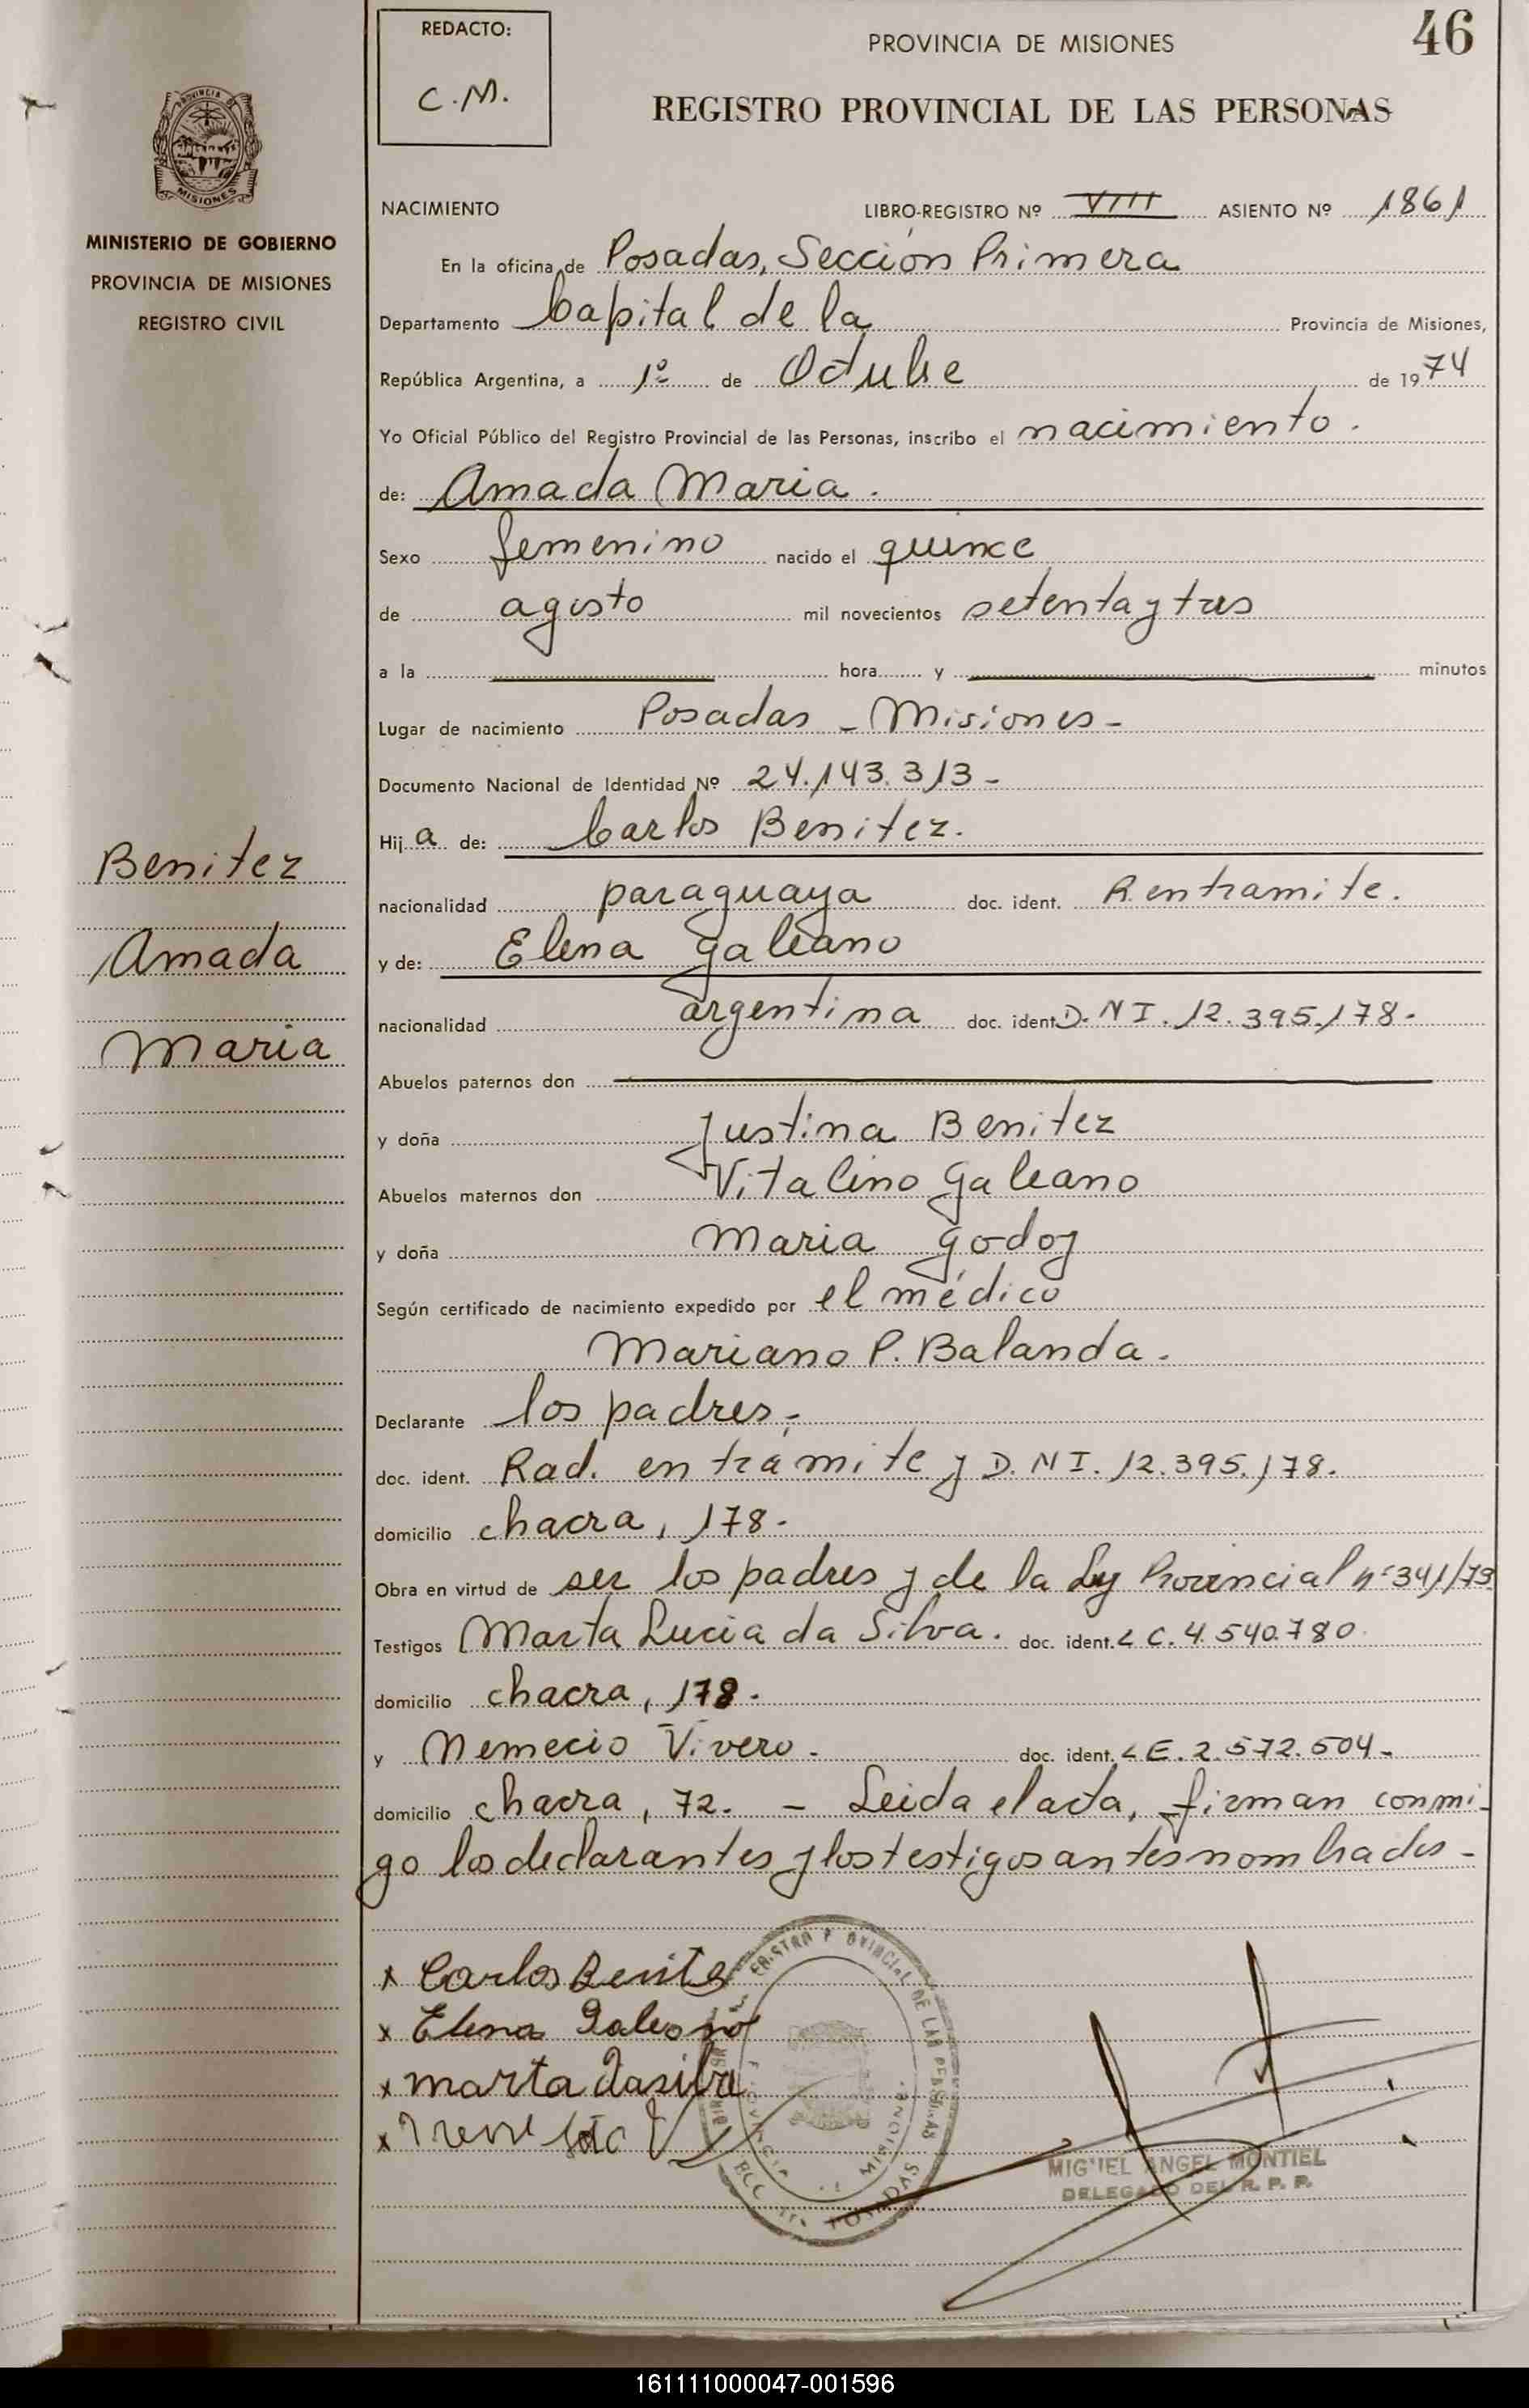 REDACTO:
C.M.
PROVINCIA DE MISIONES
46
REGISTRO PROVINCIAL DE LAS PERSONAS
MISIONES
MINISTERIO DE GOBIERNO
PROVINCIA DE MISIONES
REGISTRO CIVIL
NACIMIENTO LIBRO-REGISTRO Nº VIII ASIENTO Nº 1861
En la oficina de Posadas, Sección Primera
Departamento Capital de la Provincia de Misiones,
República Argentina, a 1º de Octubre de 1974
Yo Oficial Público del Registro Provincial de las Personas, inscribo el nacimiento.
de: Amada Maria.
Sexo femenino nacido el quince
de agosto mil novecientos setenta y tres
a la hora y minutos
Lugar de nacimiento Posadas - Misiones -
Documento Nacional de Identidad Nº 24.143.313 -
Hija de: Carlos Benitez.
Benitez
nacionalidad paraguaya doc. ident. R. en tramite.
Amada
y de: Elena Galeano
nacionalidad argentina doc. ident. D.N I. 12.395.178.
Maria
Abuelos paternos don
y doña Justina Benitez
Abuelos maternos don Vitalino Galeano
y doña Maria Godoy
Según certificado de nacimiento expedido por el médico
Mariano P. Balanda.
Declarante los padres.-
doc. ident. Rad. en trámite y D. N I. 12.395.178.
domicilio chacra, 178.
Obra en virtud de ser los padres y de la Ley Provincial nº 341/73
Testigos Marta Lucia da Silva. doc. ident. L C. 4.540.780.
domicilio chacra, 178.
y Nemecio Vivero. doc. ident. L E. 2.572.504.
domicilio chacra, 72. - Leida el acta, firman conmi-
go los declarantes y los testigos antes nombrados -
x Carlos Benite
x Elena Galeano
x marta dasilva
x
MIGUEL ANGEL MONTIEL
DELEGADO DEL R. P. P.
161111000047-001596